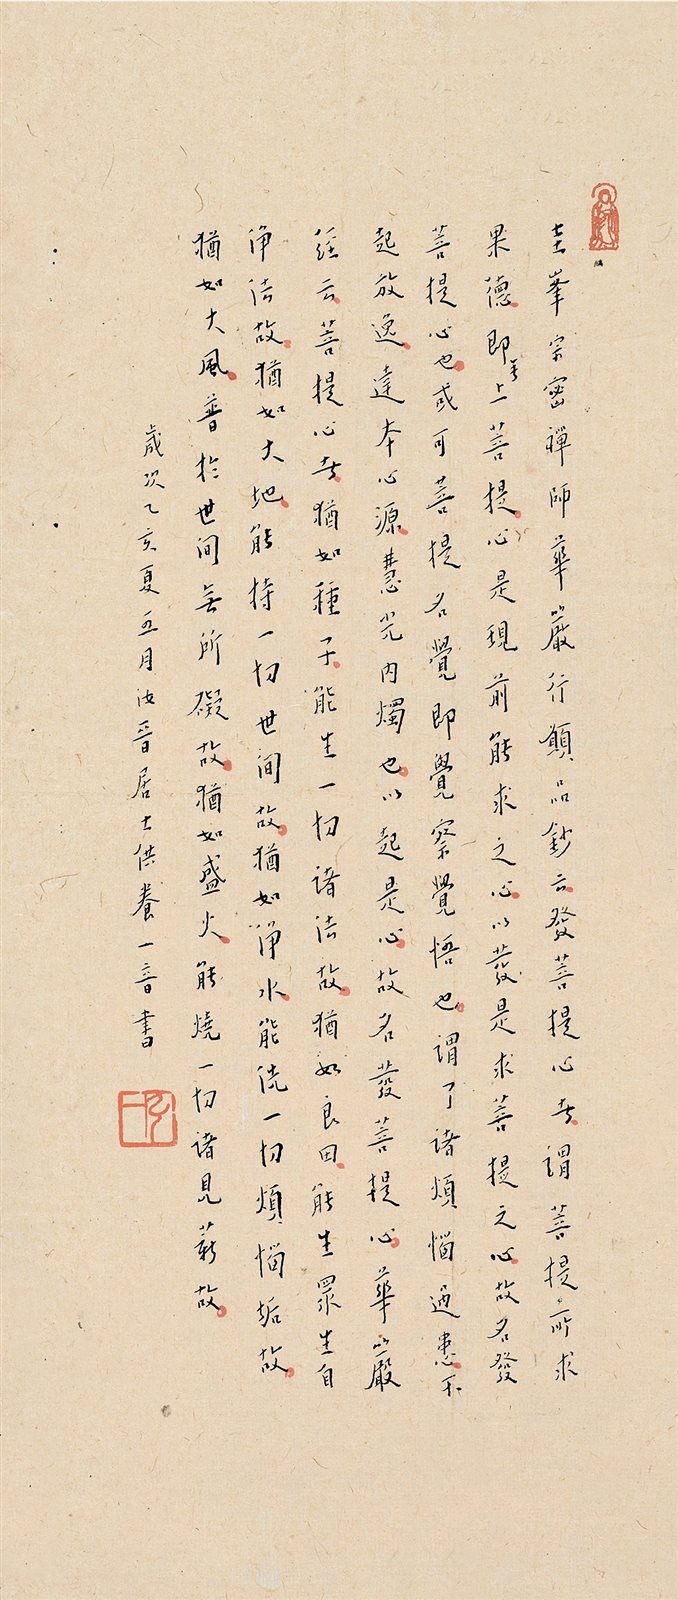 圭峯宗密禪師華嚴行願品鈔云發菩提心者謂菩提所求
果德即無上菩提心是現前能求之心以發是求菩提之心故名發
菩提心也或可菩提名覺即覺察覺悟也謂了諸煩惱過患不
起放逸達本心源慧光內燭也以起是心故名發菩提心華嚴
經云菩提心者猶如種子能生一切諸法故猶如良田能生眾生白
淨法故猶如大地能持一切世間故猶如淨水能洗一切煩惱垢故
猶如大風普於世間無所礙故猶如盛火能燒一切諸見薪故
歲次乙亥夏五月汝晉居士供養一音書